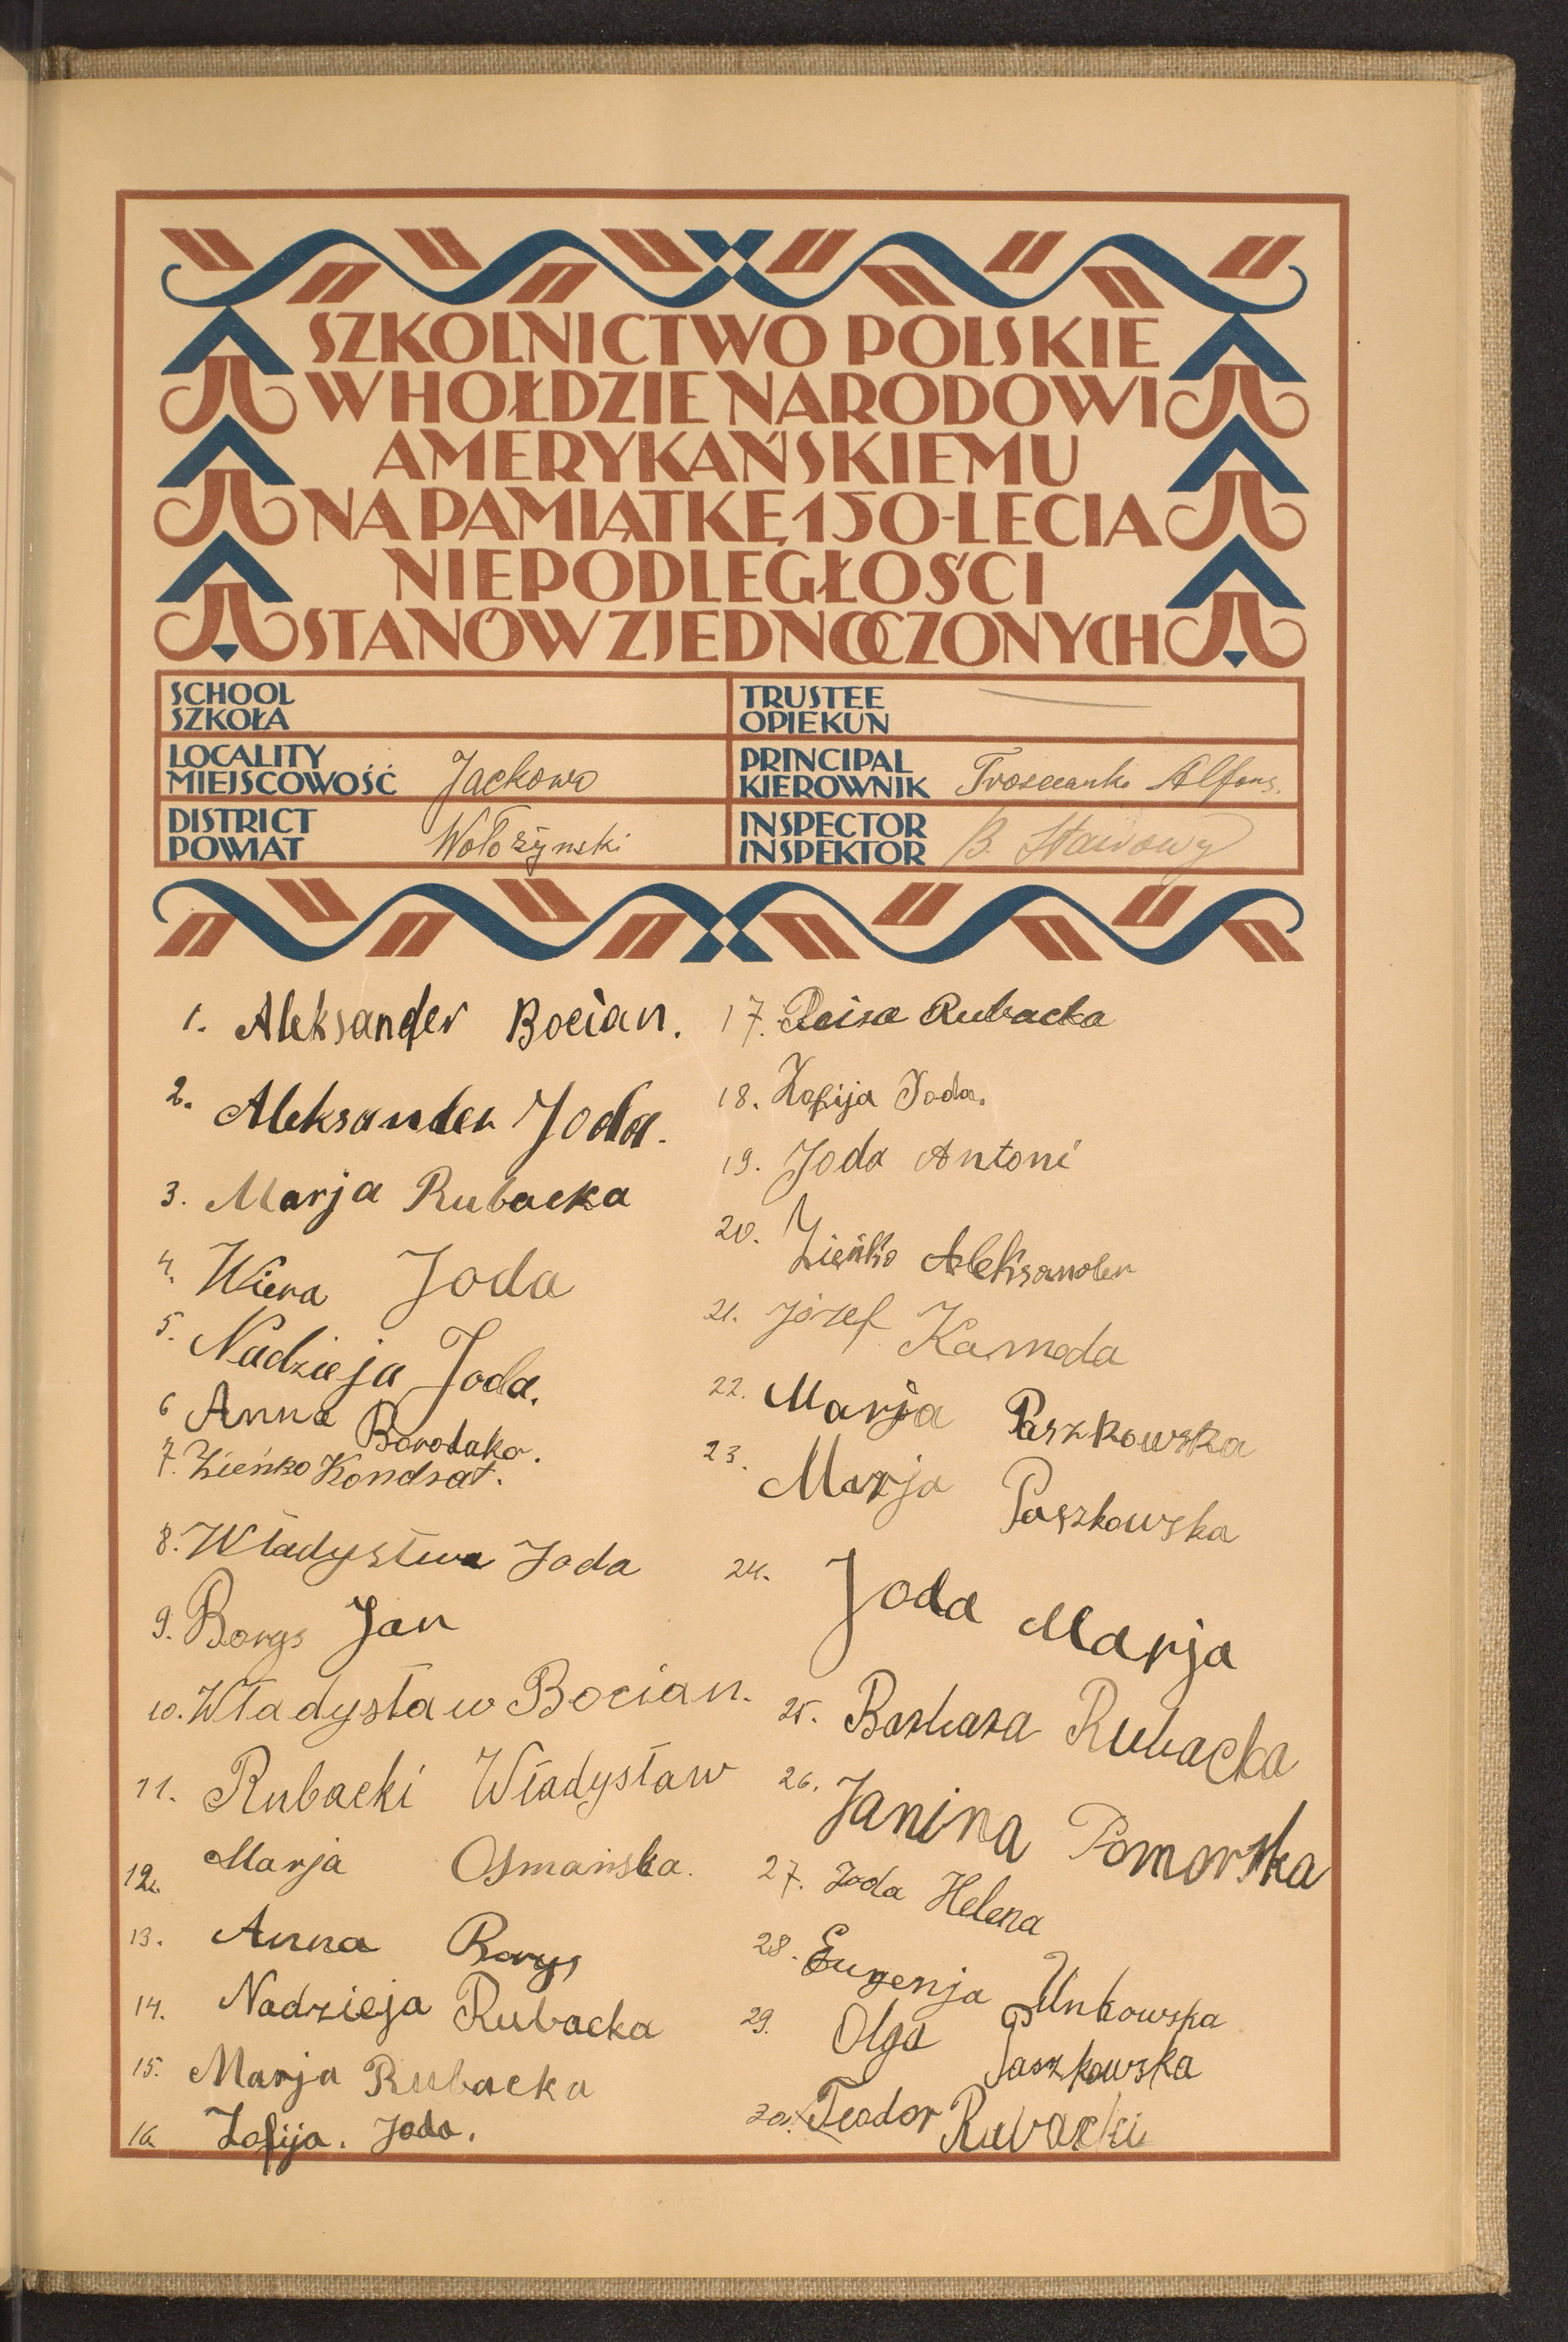 SZKOLNICTWO POLSKIE
W HOŁDZIE NARODOWI
AMERYKAŃSKIEMU
NA PAMIĄTKĘ 150-LECIA
NIEPODLEGŁOŚCI
STANÓW ZJEDNOCZONYCH
SCHOOL
SZKOŁA
TRUSTEE
OPIEKUN
LOCALITY
MIEJSCOWOŚĆ Jackowo
PRINCIPAL
KIEROWNIK Trosceanko Alfons.
DISTRICT
POWIAT Wołożynski
INSPECTOR
INSPEKTOR B. Stawowy
1. Aleksander Bocian.
2. Aleksander Joda.
3. Marja Rubacka
4. Wiera Joda
5. Nadzieja Joda.
6 Anna Borodako.
7. Zieńko Kondrat.
8. Władysława Joda
9. Borys Jan
10. Władysław Bocian.
11. Rubacki Władysław
12. Marja Osmańska.
13. Anna Borys
14. Nadzieja Rubacka
15. Marja Rubacka
16. Zofija. Joda.
17. Raisa Rubacka
18. Zofija Joda.
19. Joda Antoni
20. Zieńko Aleksander
21. Józef Kameda
22. Marja Paszkowska
23. Marja Paszkowska
24. Joda Marja
25. Barbara Rubacka
26. Janina Pomorska
27. Joda Helena
28. Eugenja Unkowska
29. Olga Paszkowska
30. Teodor Rubacki